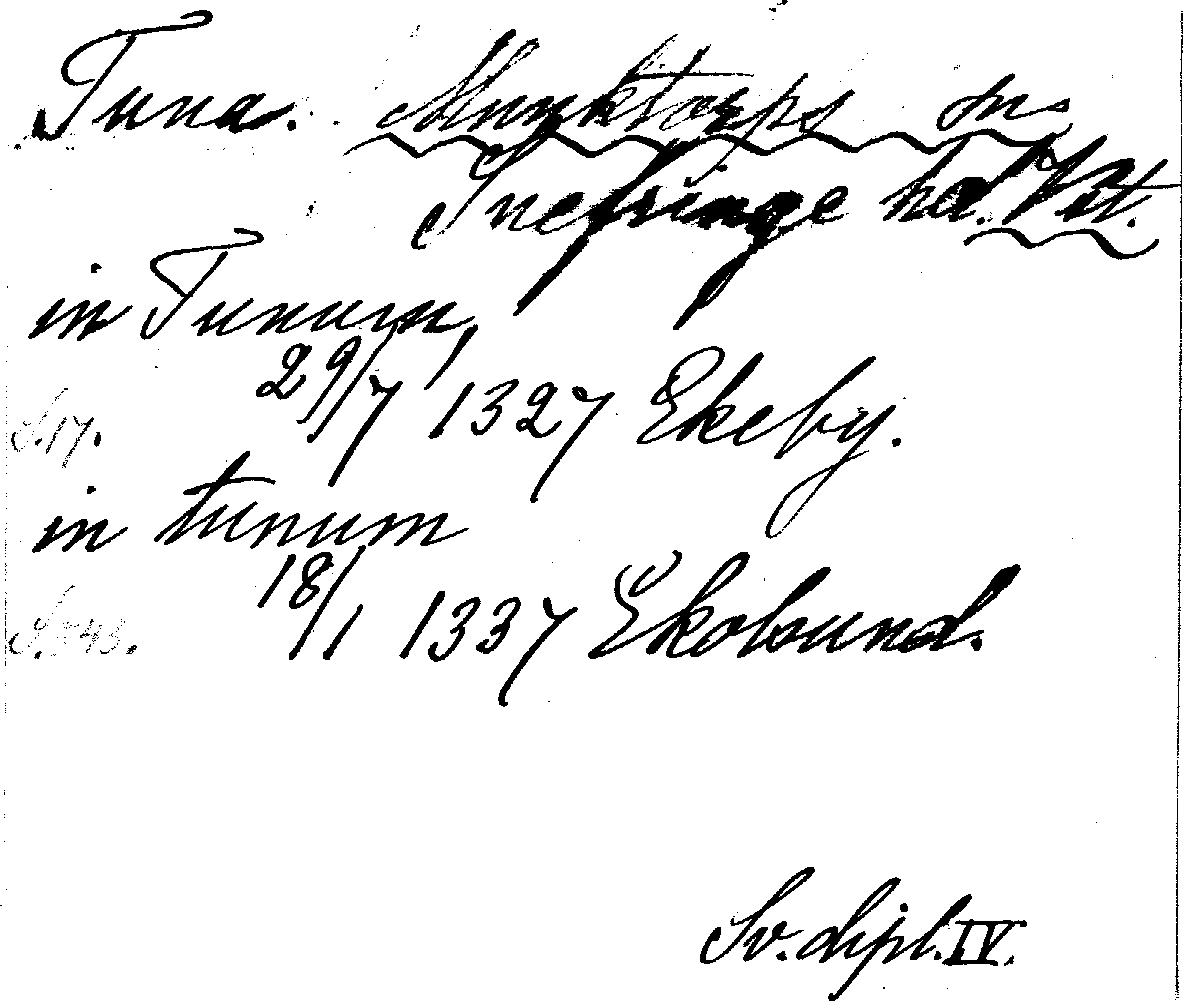 Tuna. Munktorps sn
Snefringe hd. Vst.
in Tunum,
29/7 1327 Ekeby.
S. 17.
in tunum
18/1 1337 Ekolsund.
Sv. dipl. IV.